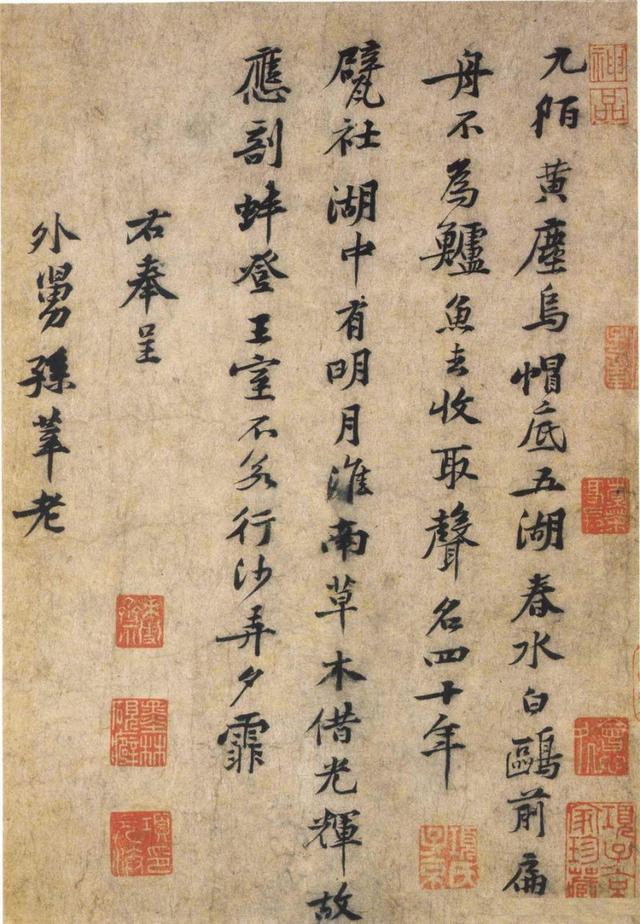 神品
九陌黄塵烏帽底五湖春水白鷗前扁
舟不為鱸魚去收取聲名四十年
甓社湖中有明月淮南草木借光輝故
應剖蚌登王室不若行沙弄夕霏
右奉呈
外舅孫莘老
項子京家珍藏